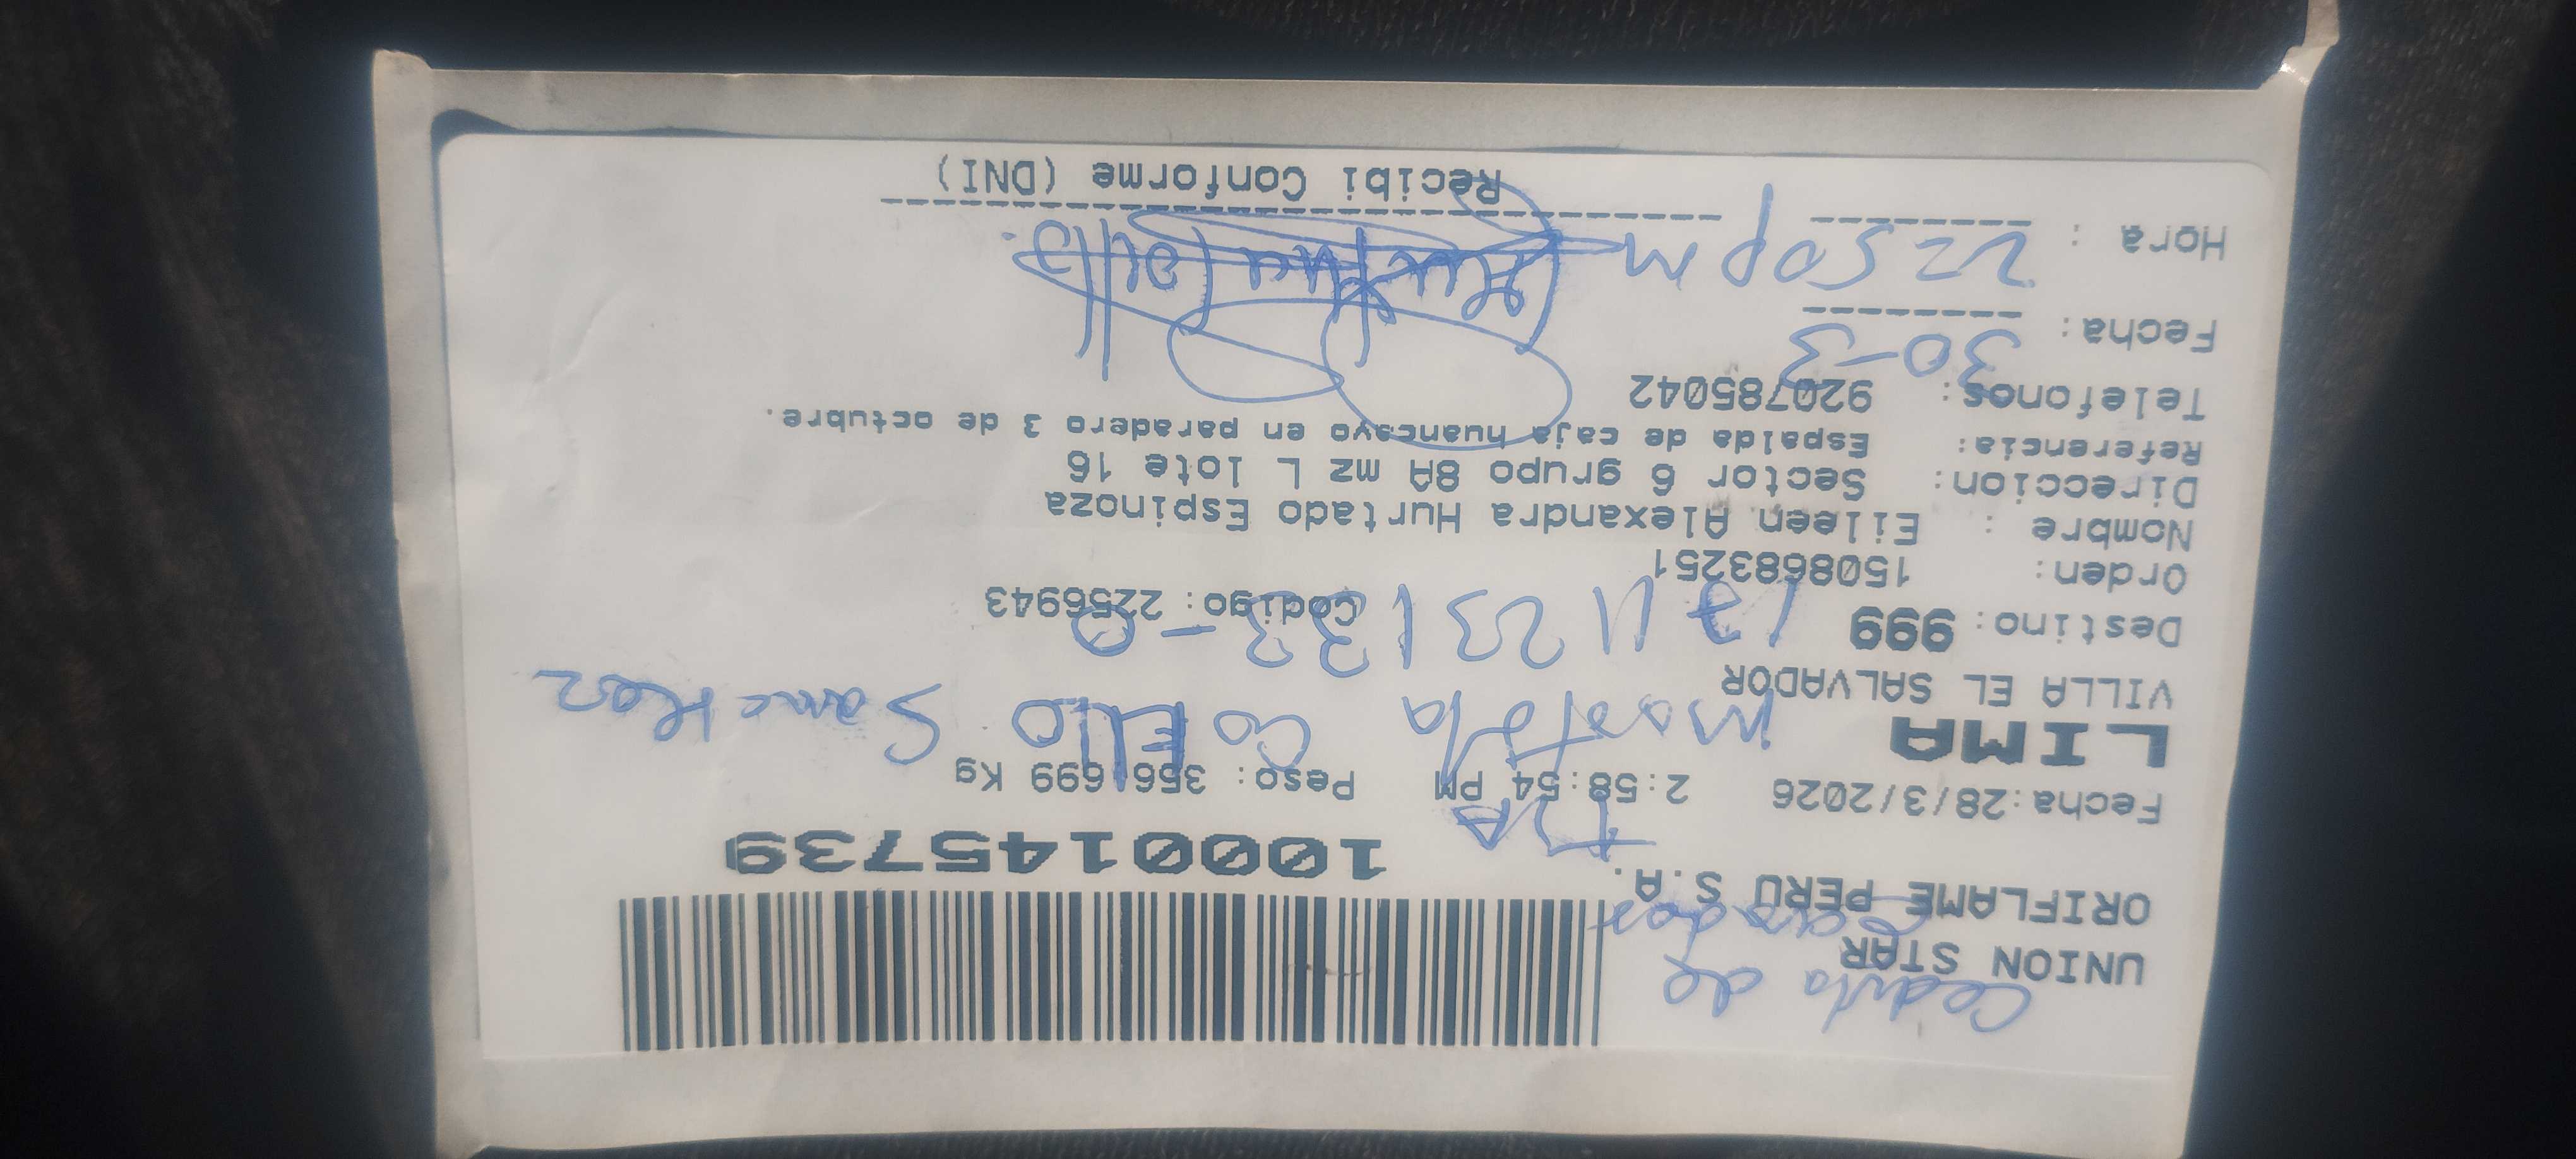 UNION STAR
ORIFLAME PERU S.A.
1000145739
Fecha:28/3/2026 2:58:54 PM Peso: 3561699 Kg
LIMA
VILLA EL SALVADOR
Destino: 999 Codigo: 2256943
Orden: 1508683251
Nombre : Eileen Alexandra Hurtado Espinoza
Direccion: Sector 6 grupo 8A mz L lote 16
Referencia: Espalda de caja huancayo en paradero 3 de octubre.
Telefonos: 920785042
Fecha: 30-3
Hora : 2250pm
Recibi Conforme (DNI)
de
Coello Sanchez